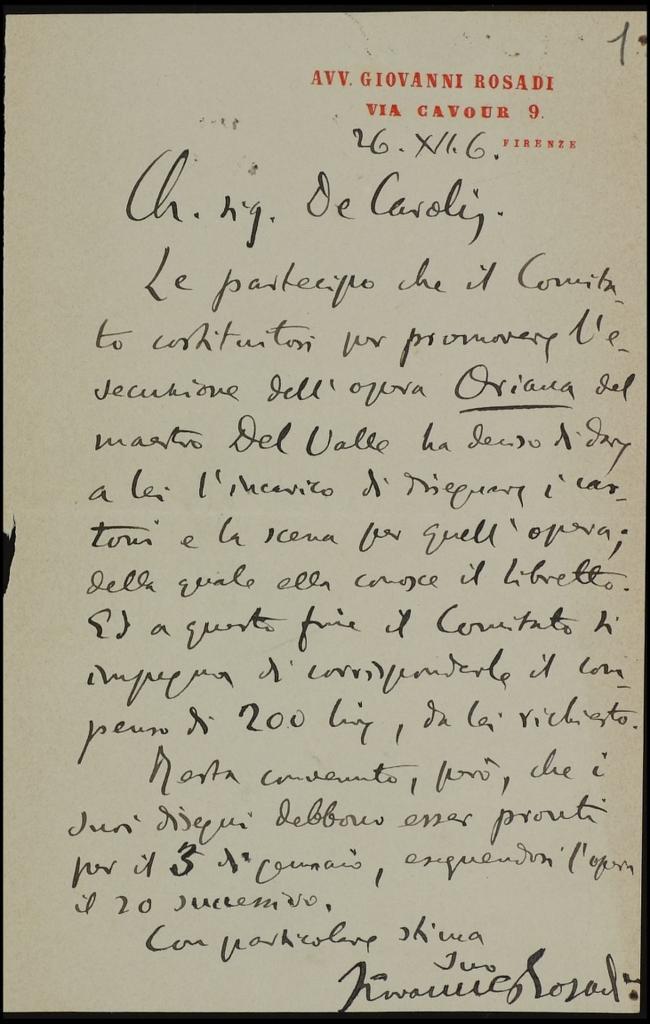 1
AVV. GIOVANNI ROSADI
VIA CAVOUR 9.
FIRENZE
26. XI. 6.
Ch. sig. De Carolis.
Le partecipo che il Comita-
to costituitosi per promovere l'e-
secuzione dell'opera Oriana del
maestro Del Valle ha deciso di dare
a lei l'incarico di disegnare i car-
toni e la scena per quell'opera;
della quale ella conosce il libretto.
Ed a questo fine il Comitato si
impegna di corrisponderle il com-
penso di 200 lire, da lei richiesto.
Resta convenuto, però, che i
suoi disegni debbono esser pronti
per il 5 di gennaio, eseguendosi l'opera
il 20 successivo.
Con particolare stima
Suo
Giovanni Rosadi